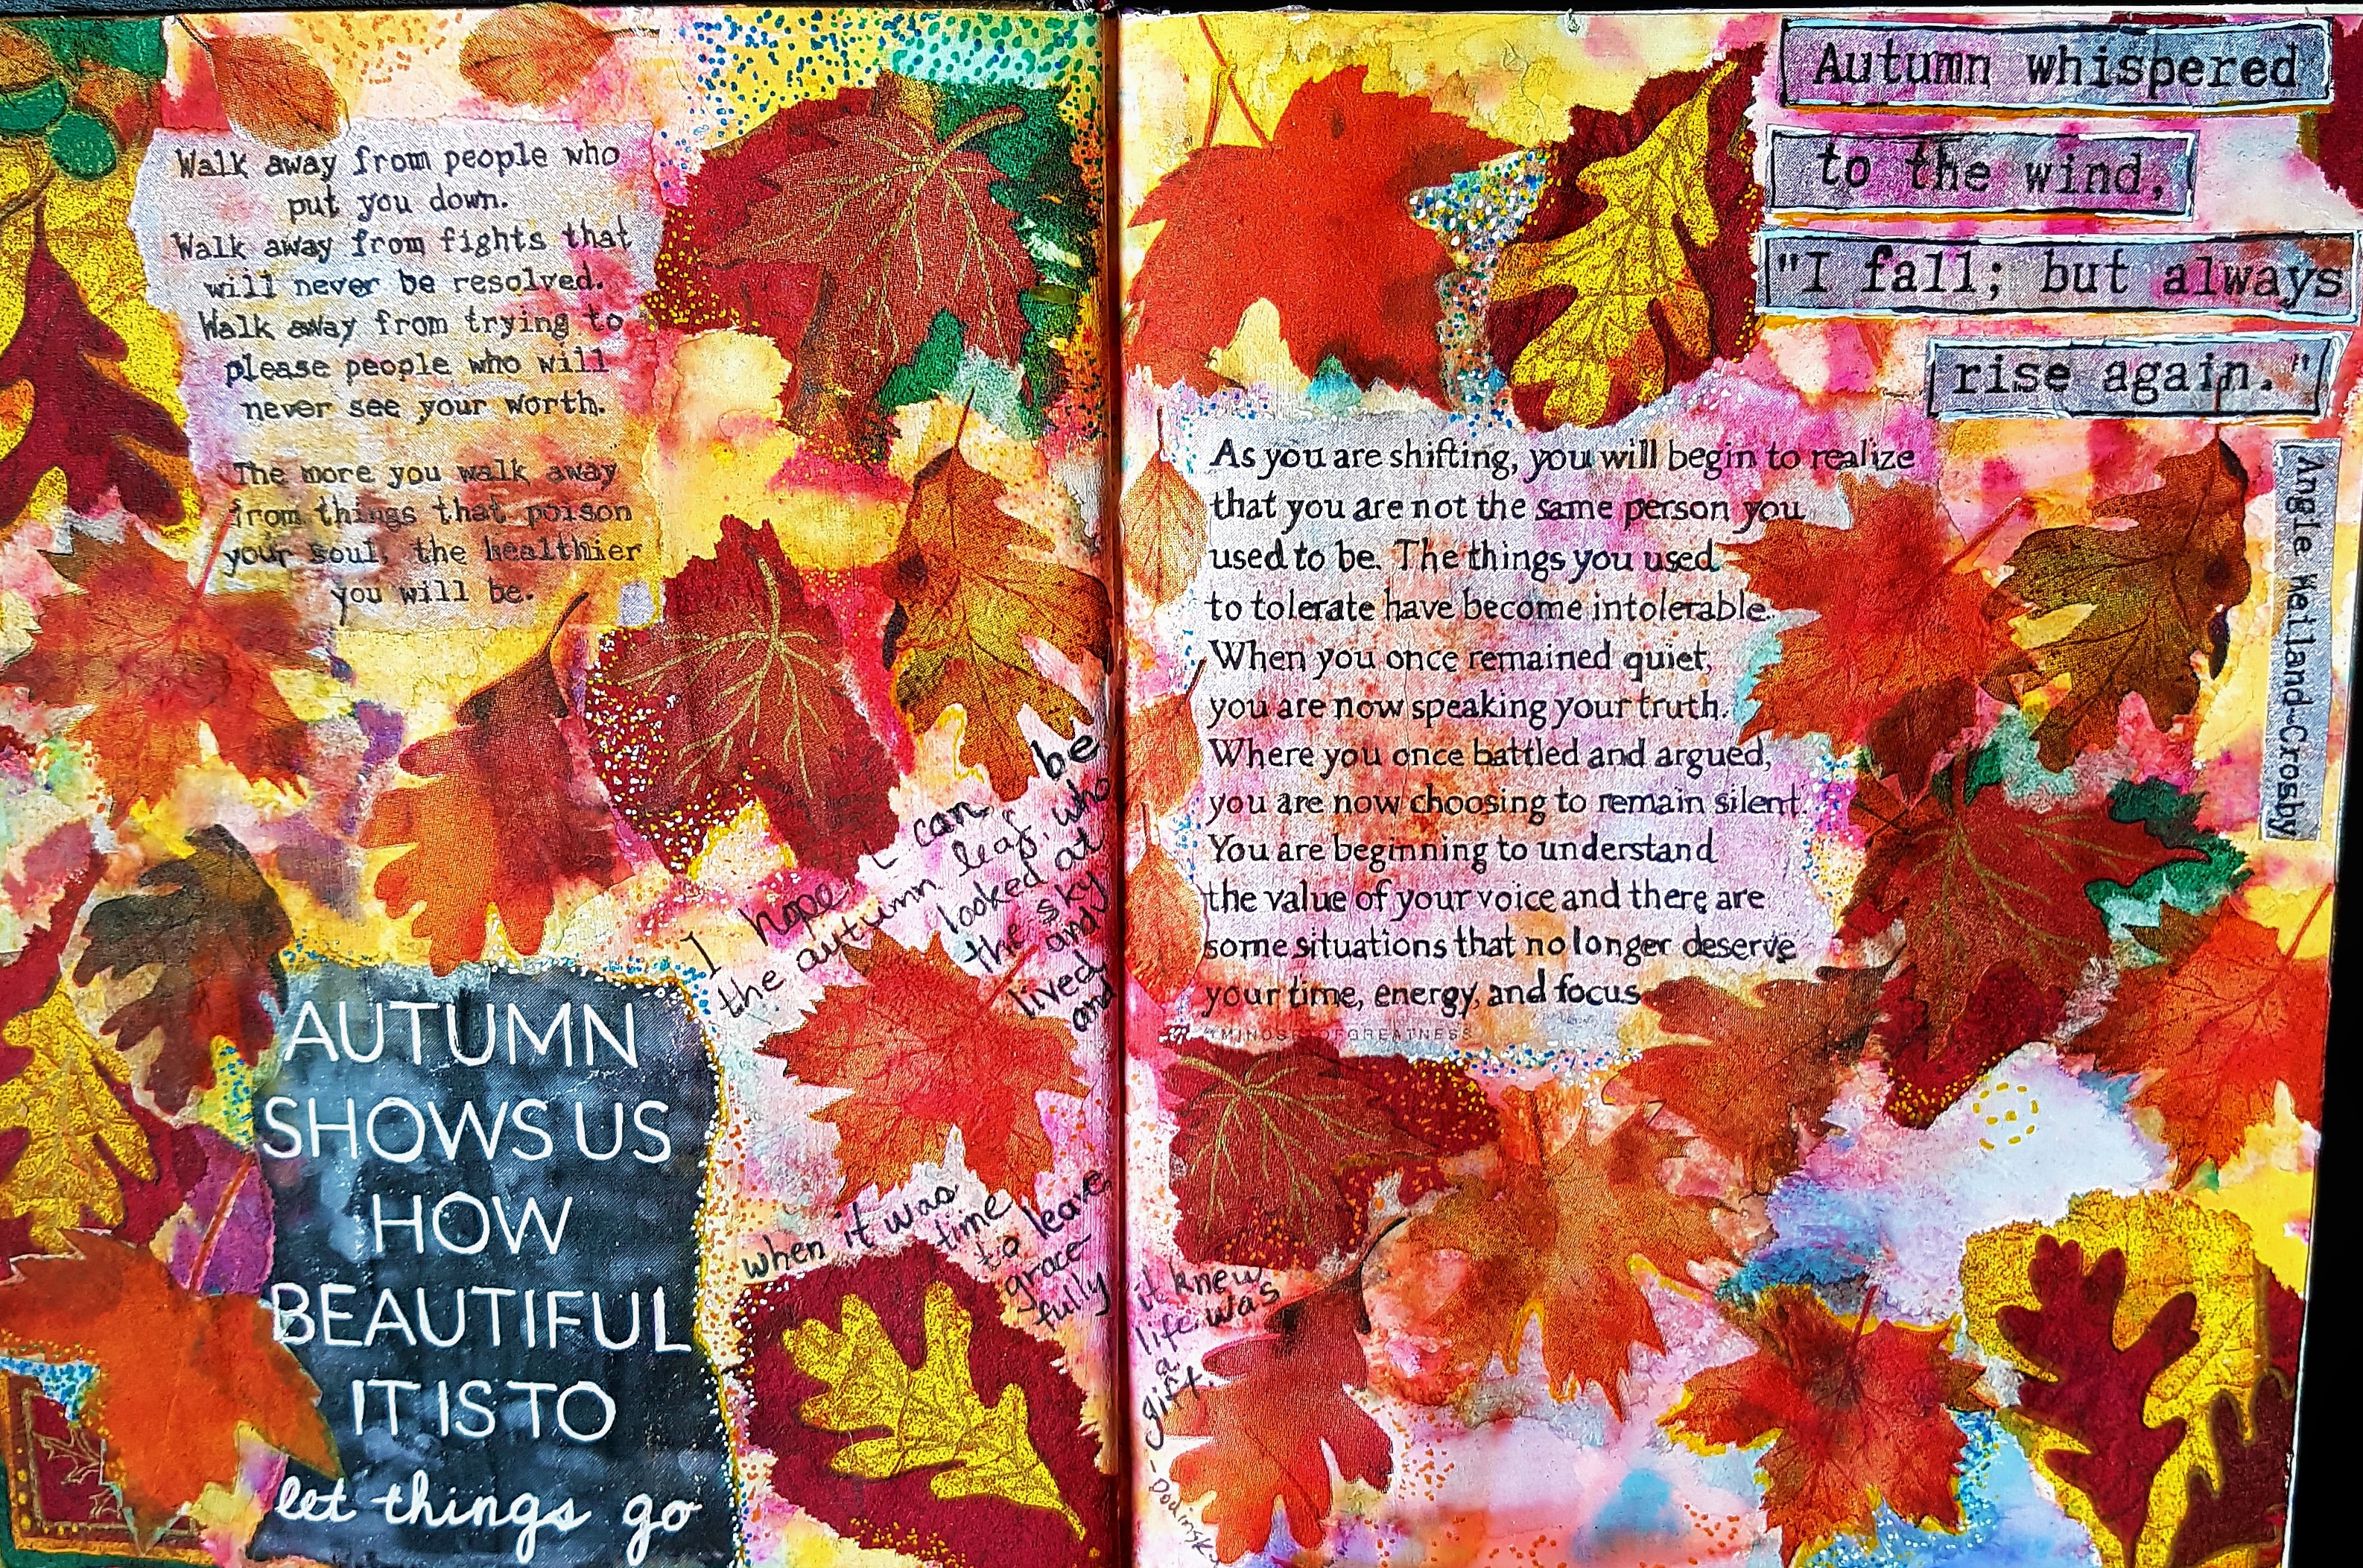 Walk away from people who
put you down.
Walk away from fights that
will never be resolved.
Walk away from trying to
please people who will
never see your worth.
The more you walk away
from things that poison
your soul, the healthier
you will be.
I hope I can be
the autumn leaf, who
looked at
the sky
and
lived
and
when it was
time
to leave
grace-
fully
it knew
life was
a
gift.
- Dodinsky
AUTUMN
SHOWS US
HOW
BEAUTIFUL
IT IS TO
let things go
Autumn whispered
to the wind,
"I fall; but always
rise again."
Angie Weiland-Crosby
As you are shifting, you will begin to realize
that you are not the same person you
used to be. The things you used
to tolerate have become intolerable.
When you once remained quiet,
you are now speaking your truth.
Where you once battled and argued,
you are now choosing to remain silent.
You are beginning to understand
the value of your voice and there are
some situations that no longer deserve
your time, energy, and focus
MINDSETOFGREATNESS